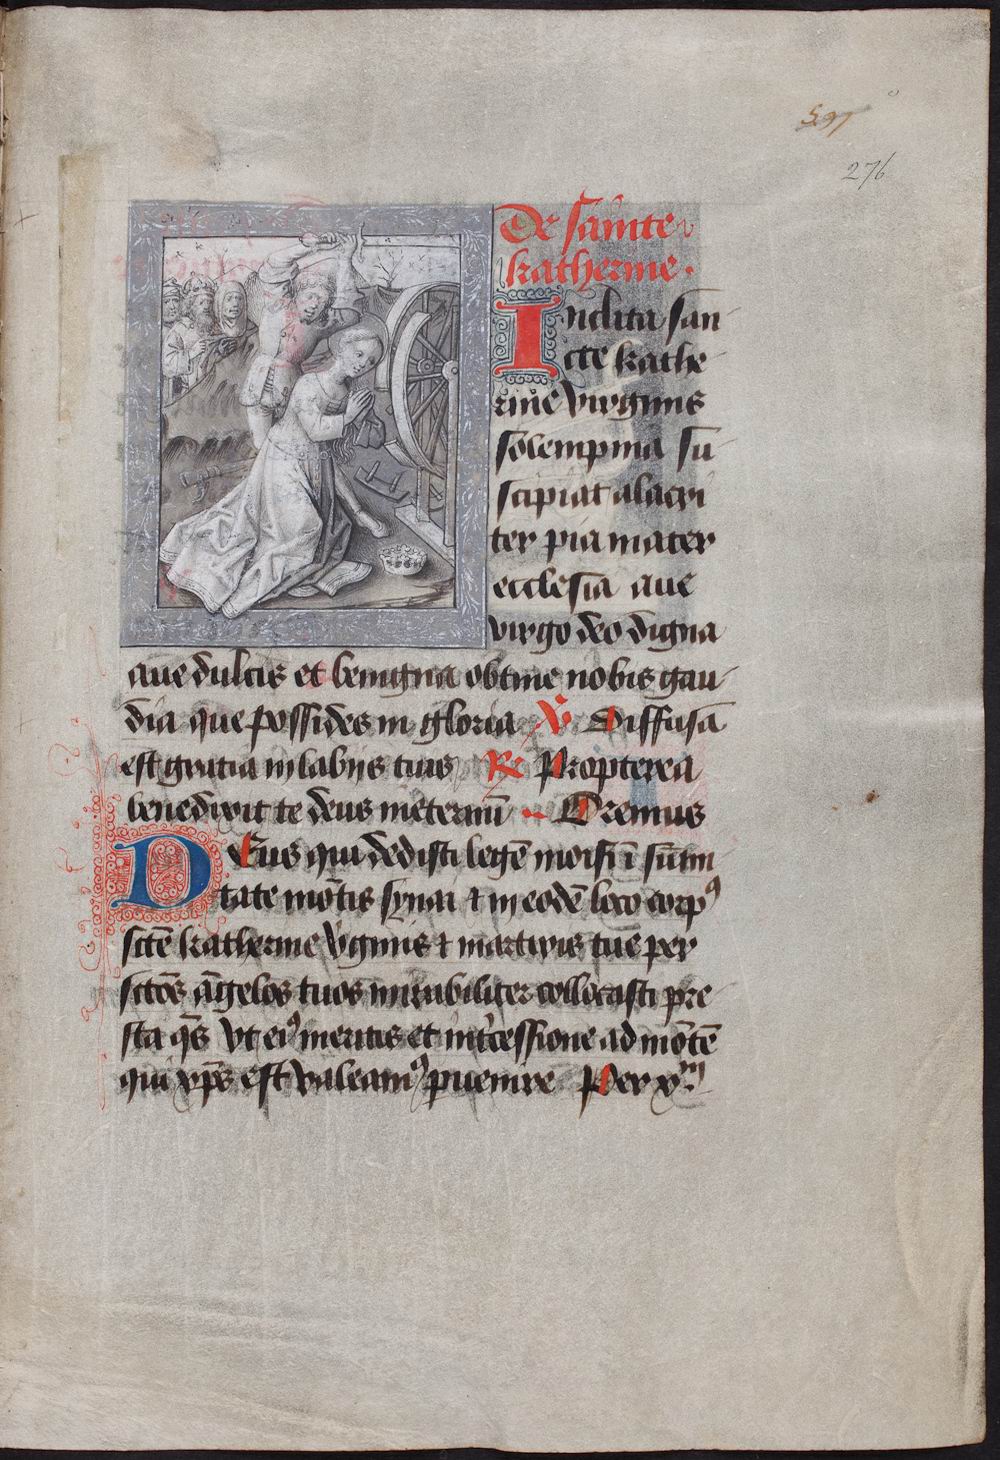 597
276
De sainte
katherine.
Inclita san
cte kathe
rine virginis
solempnia su
scipiat alacri
ter pia mater
ecclesia aue
virgo deo digna
aue dulcis et benigna obtine nobis gau
dia que possides in gloria ℣ Diffusa
est gratia in labijs tuis ℟ Propterea
benedixit te deus in eternũ Oremus
Deus qui dedisti legẽ moisi ĩ sũmi
tate mõtis synai ⁊ in eodẽ loco corpꝰ
sctẽ katherine v̾ginis ⁊ martiris tue per
sctõs ãgelos tuos mirabiliter collocasti pre
sta q̃s vt eiꝰ meritis et int̾cessione ad mõtẽ
qui xp̃s est valeamꝰ puenire Per xᵐ